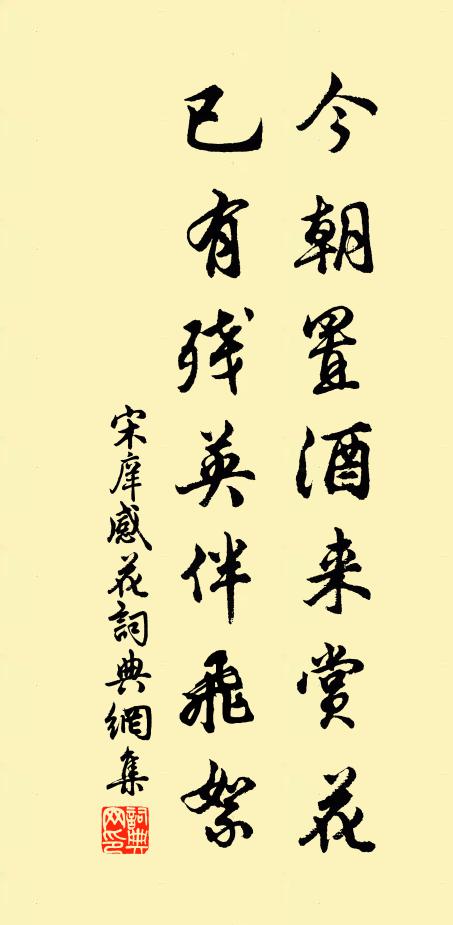 今朝置酒来赏花
已有残英伴飞絮
宋庠感花詞典網集
詞典网印